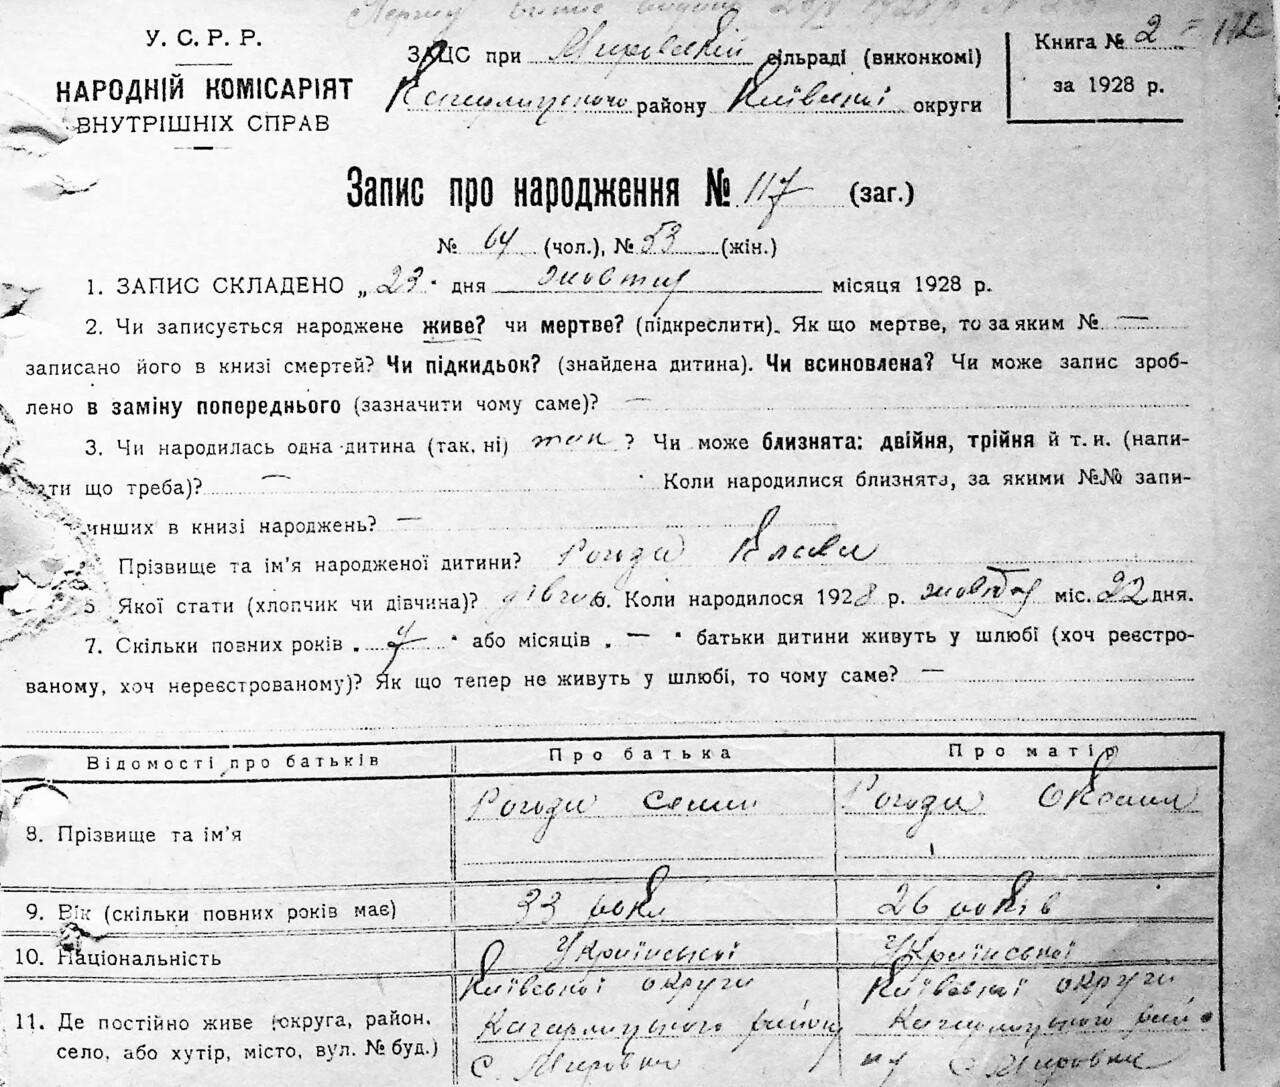 Першу витяг видано
У. С. Р. Р.
НАРОДНІЙ КОМІСАРІЯТ
ВНУТРІШНІХ СПРАВ
ЗАЦС при Мировській сільраді (виконкомі)
Кагарлицького району Київської округи
Книга № 2
за 1928 р.
Запис про народження № 117 (заг.)
№ 64 (чол.), № 53 (жін.)
1. ЗАПИС СКЛАДЕНО „ 23 " дня жовтня місяця 1928 р.
2. Чи записується народжене живе? чи мертве? (підкреслити). Як що мертве, то за яким № —
записано його в книзі смертей? Чи підкидьок? (знайдена дитина). Чи всиновлена? Чи може запис зроб-
лено в заміну попереднього (зазначити чому саме)? —
3. Чи народилась одна дитина (так, ні) так ? Чи може близнята: двійня, трійня й т. и. (напи-
ати що треба)? — Коли народилися близнята, за якими №№ запи-
инших в книзі народжень? —
Прізвище та ім'я народженої дитини? Рогоди Клави
5. Якої стати (хлопчик чи дівчина)? дівчин 6. Коли народилося 1928 р. жовтня міс. 22 дня.
7. Скільки повних років „ 7 " або місяців „ — " батьки дитини живуть у шлюбі (хоч реєстро-
ваному, хоч нереєстрованому)? Як що тепер не живуть у шлюбі, то чому саме? —
Відомості про батьків Про батька Про матір
8. Прізвище та ім'я Рогоди Семен Рогоди Оксана
9. Вік (скільки повних років має) 33 роки 26 років
10. Національність Української Української
11. Де постійно живе (округа, район, Київської округи Київської округи
село, або хутір, місто, вул. № буд.) Кагарлицького району Кагарлицького райо
с. Мировки ну с. Мировки